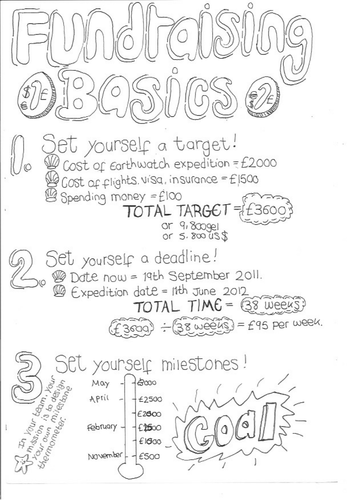 Fundraising
Basics
1. Set yourself a target!
Cost of Earthwatch expedition = £2000
Cost of flights, visa, insurance = £1500
Spending money = £100
TOTAL TARGET = £3600
or 9,800gel
or 5,800 US$
2. Set yourself a deadline!
Date now = 19th September 2011.
Expedition date = 11th June 2012
TOTAL TIME = 38 weeks
£3600 ÷ 38 weeks = £95 per week.
3 Set yourself milestones!
In your team, your
mission is to design
your own milestone
thermometer.
May
April £2500
February
November £500
Goal